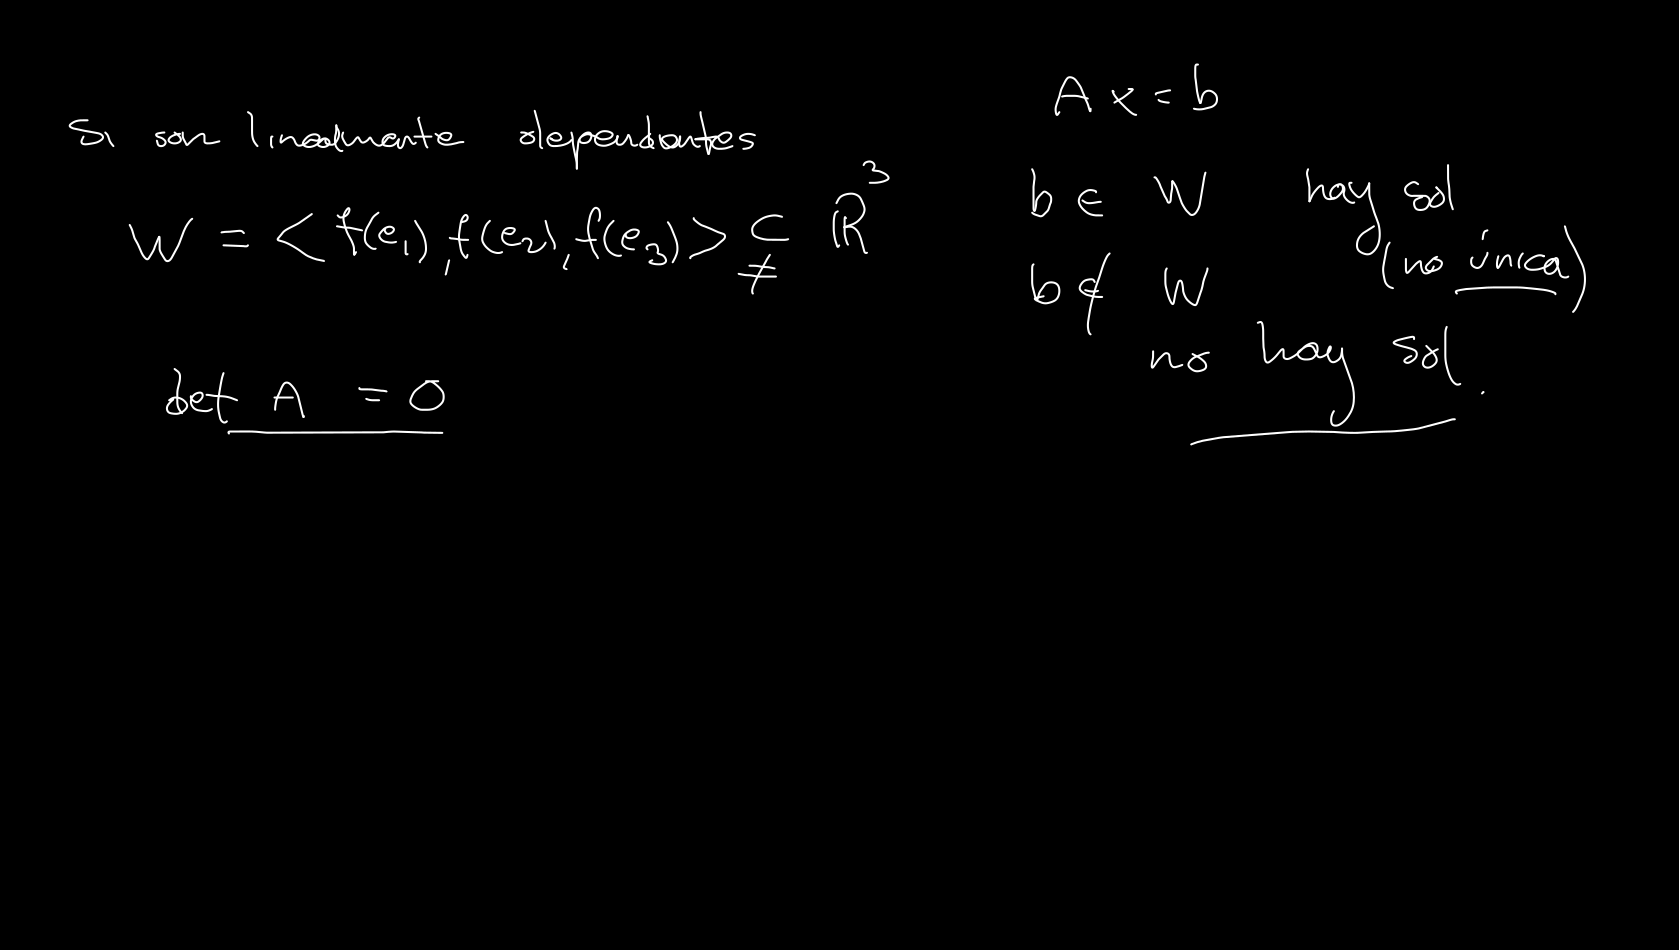 Si son linealmente dependientes
W = <f(e₁), f(e₂), f(e₃)> ⊊ ℝ³
det A = 0
Ax = b
b ∈ W hay sol
(no única)
b ∉ W
no hay sol.